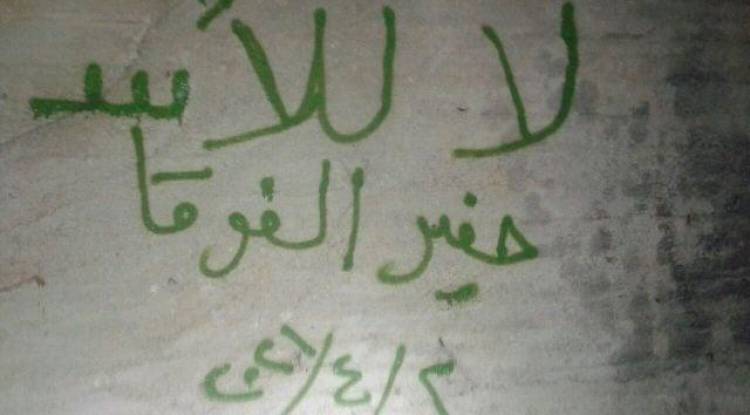 لا للأسد
حفير الفوقا
٢٠٢١/٤/٢